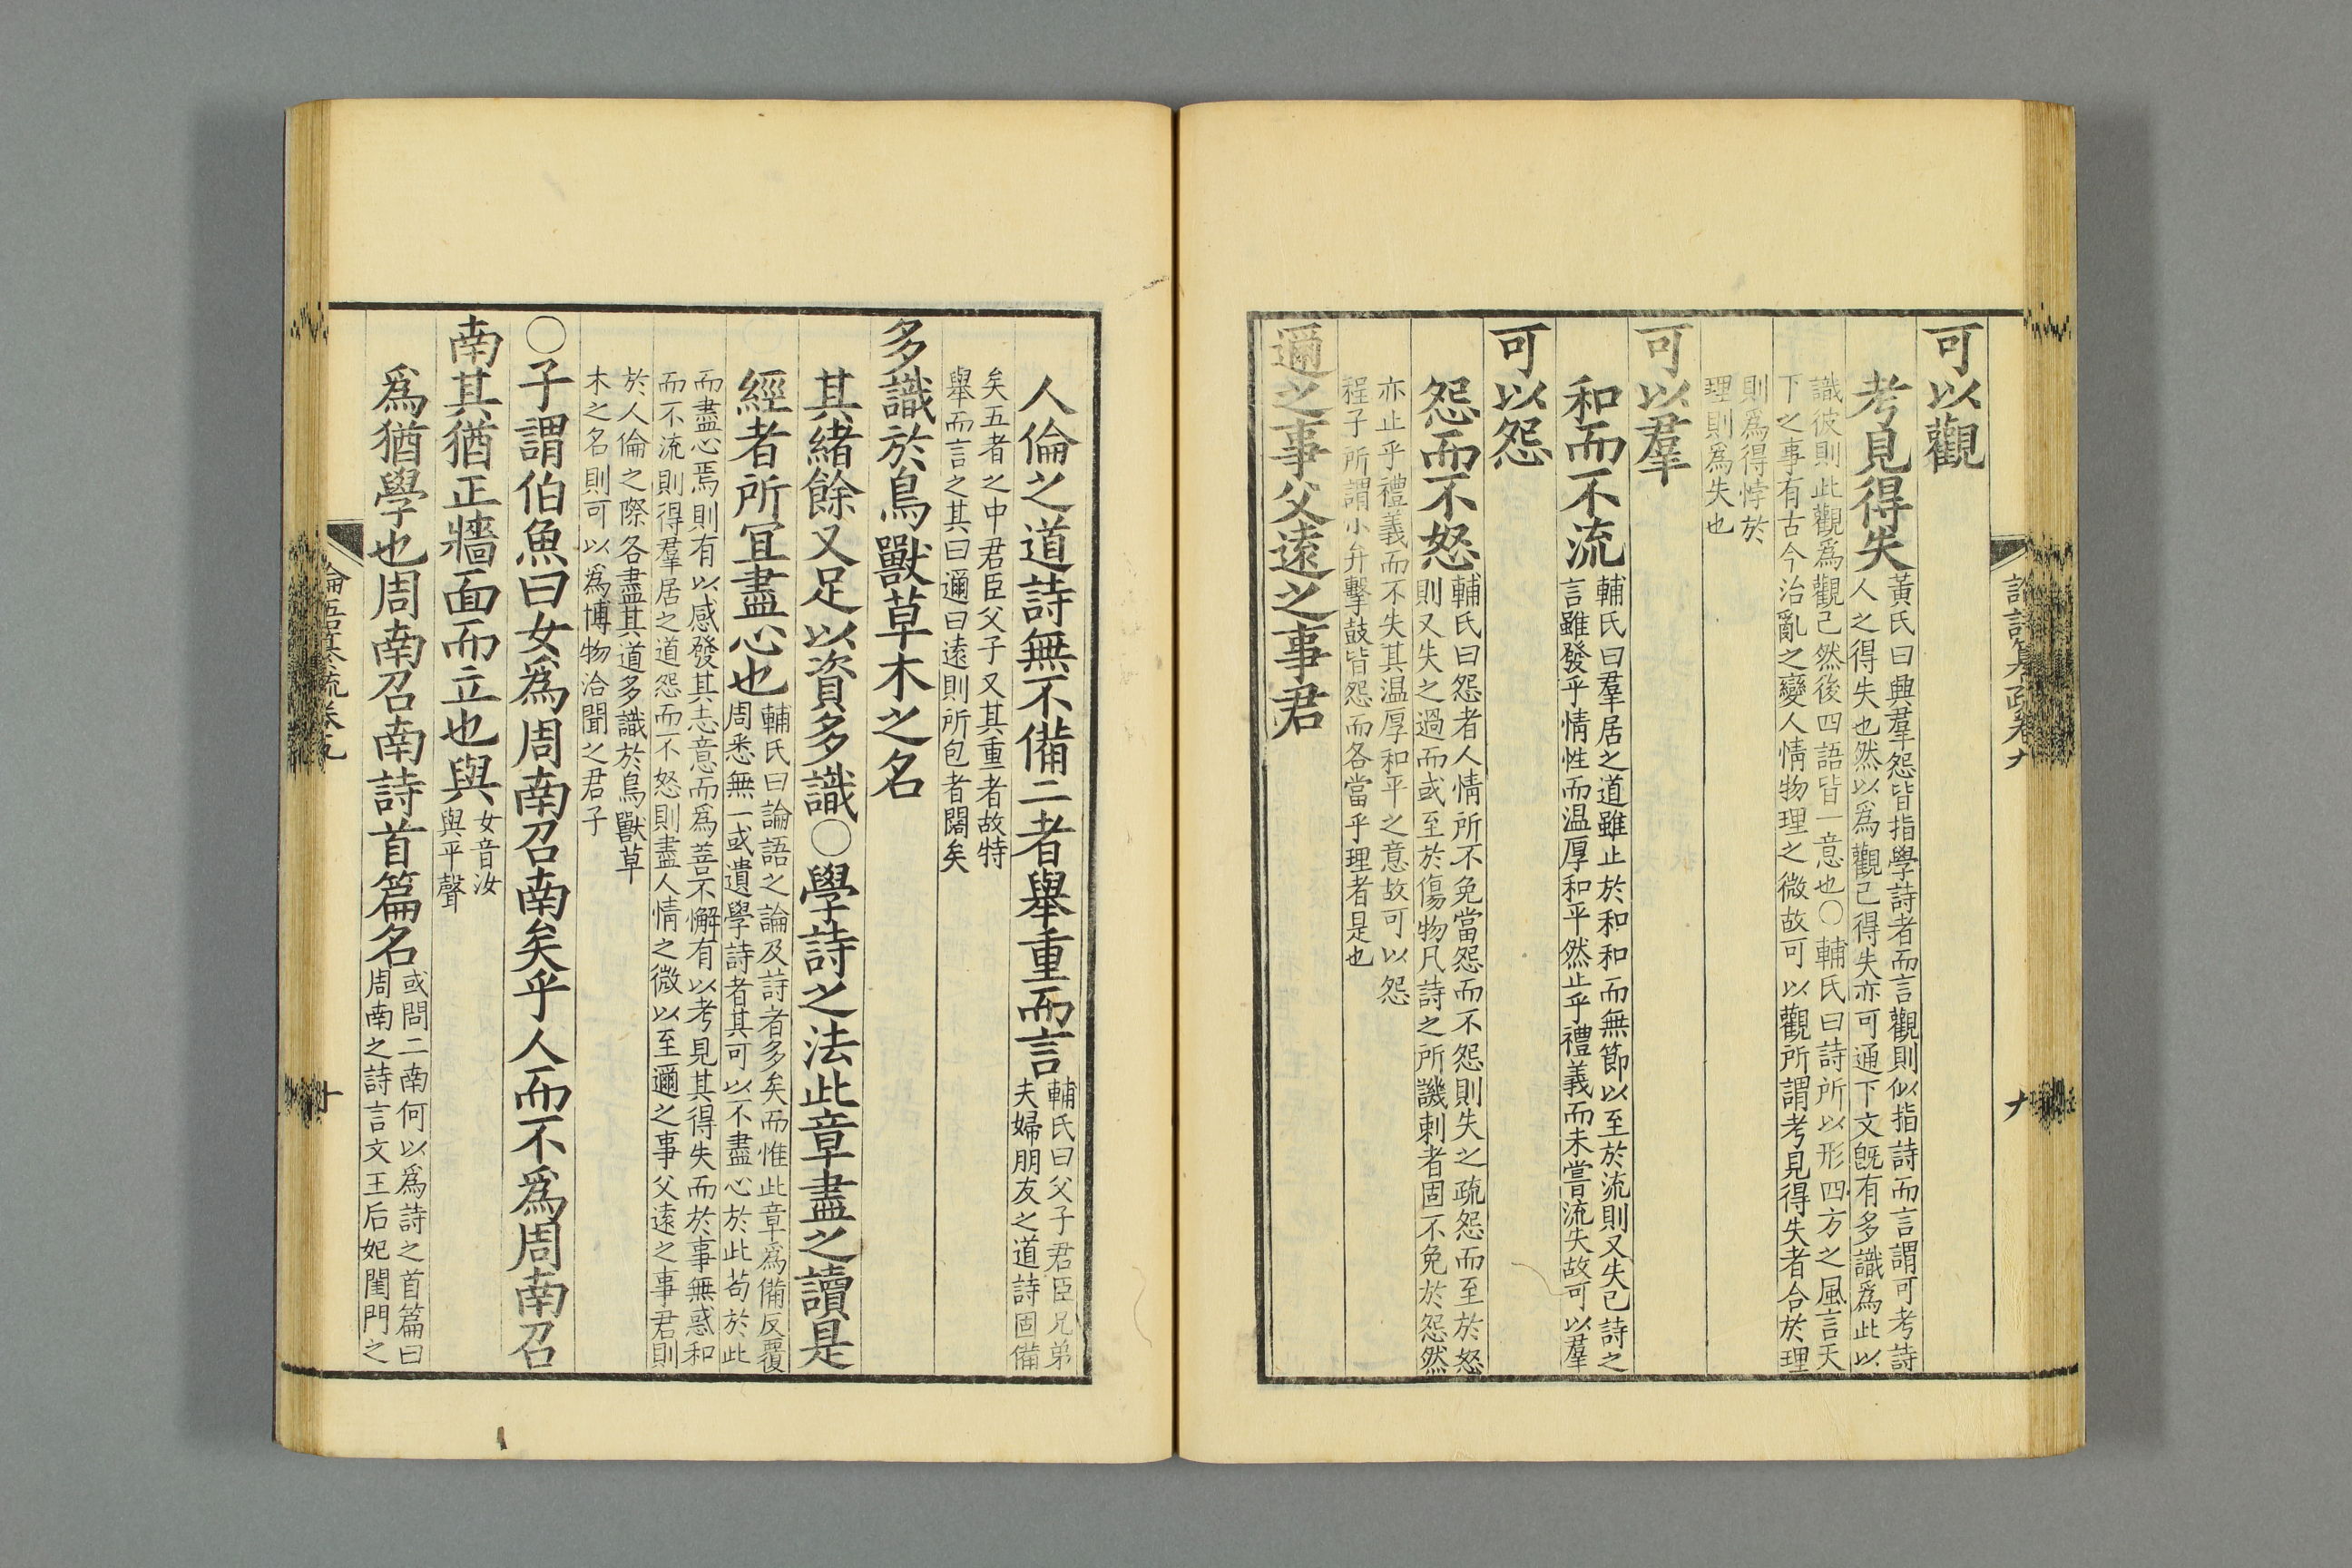 可以觀
考見得失
黃氏曰興羣怨皆指學詩者而言觀則似指詩而言謂可考詩
人之得失也然以爲觀己得失亦可通下文旣有多識爲此以
識彼則此觀爲觀己然後四語皆一意也○輔氏曰詩所以形四方之風言天
下之事有古今治亂之變人情物理之微故可以觀所謂考見得失者合於理
則爲得悖於
理則爲失也
可以羣
和而不流
輔氏曰羣居之道雖止於和和而無節以至於流則又失已詩之
言雖發乎情性而温厚和平然止乎禮義而未嘗流失故可以羣
可以怨
怨而不怒
輔氏曰怨者人情所不免當怨而不怨則失之疏怨而至於怒
則又失之過而或至於傷物凡詩之所譏刺者固不免於怨然
亦止乎禮義而不失其温厚和平之意故可以怨
程子所謂小弁擊鼓皆怨而各當乎理者是也
邇之事父遠之事君
人倫之道詩無不備二者舉重而言
輔氏曰父子君臣兄弟
夫婦朋友之道詩固備
矣五者之中君臣父子又其重者故特
舉而言之其曰邇曰遠則所包者闊矣
多識於鳥獸草木之名
其緒餘又足以資多識○學詩之法此章盡之讀是
經者所宜盡心也
輔氏曰論語之論及詩者多矣而惟此章爲備反覆
周悉無一或遺學詩者其可以不盡心於此苟於此
而盡心焉則有以感發其志意而爲善不懈有以考見其得失而於事無惑和
而不流則得羣居之道怨而不怒則盡人情之微以至邇之事父遠之事君則
於人倫之際各盡其道多識於鳥獸草
木之名則可以爲博物洽聞之君子
○子謂伯魚曰女爲周南召南矣乎人而不爲周南召
南其猶正牆面而立也與
女音汝
與平聲
爲猶學也周南召南詩首篇名
或問二南何以爲詩之首篇曰
周南之詩言文王后妃閨門之